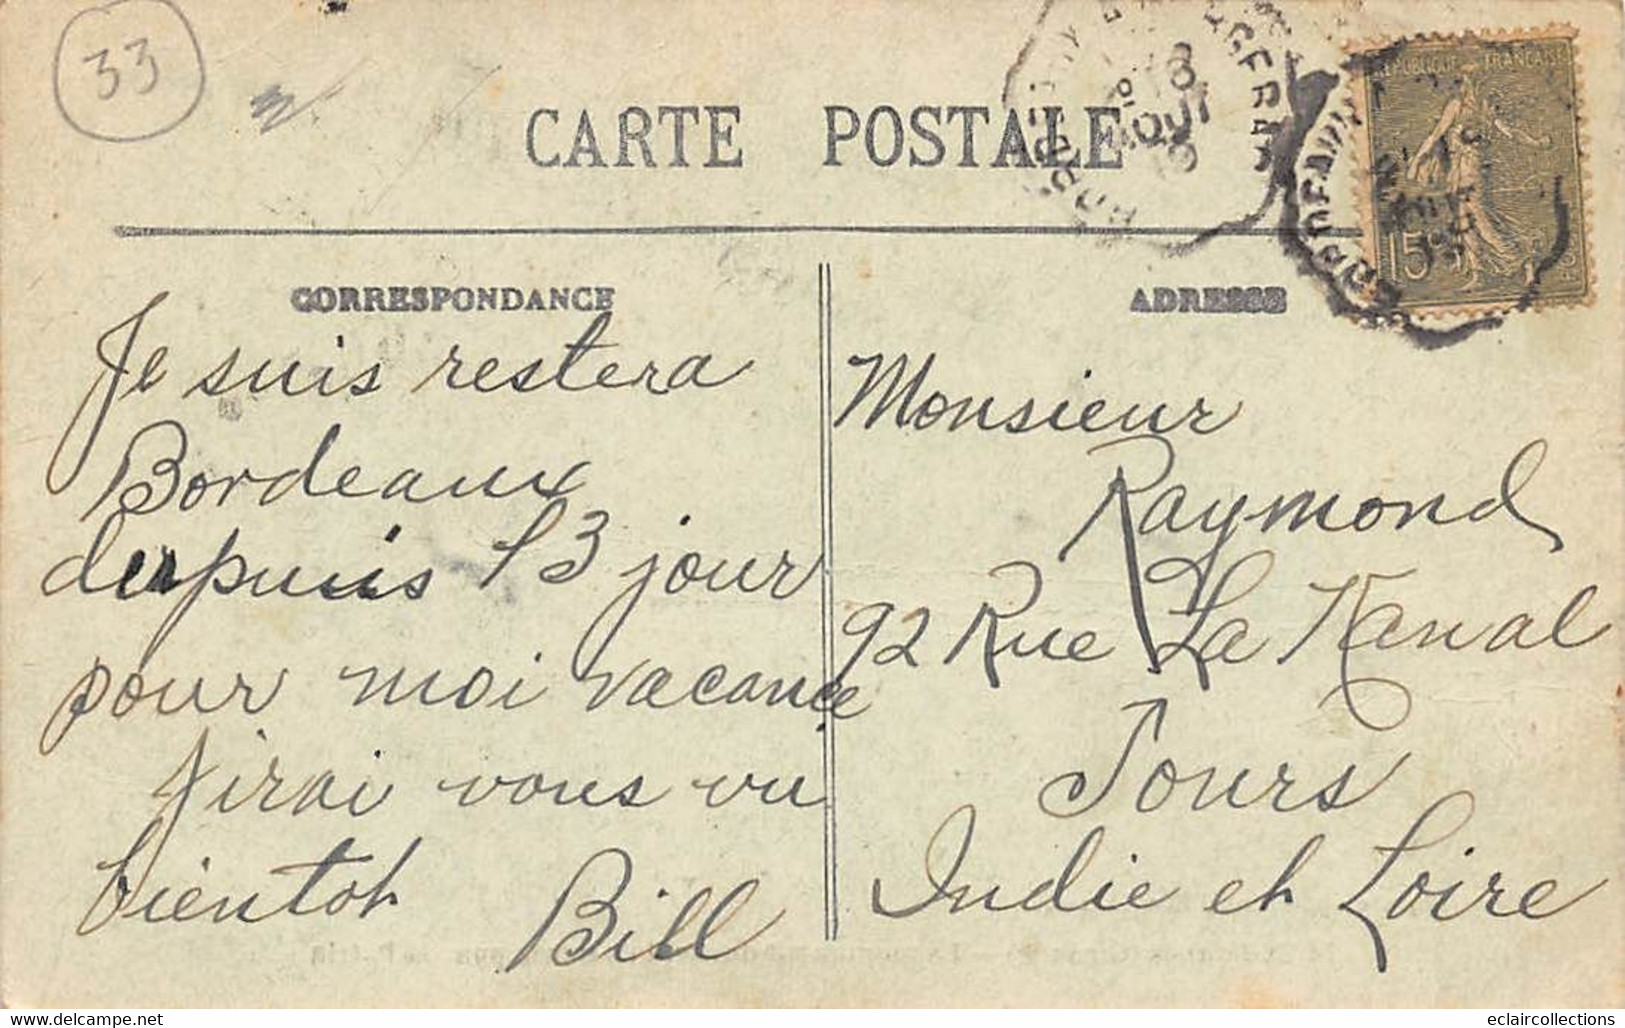 33
CARTE POSTALE
REPUBLIQUE FRANÇAISE
15
CORRESPONDANCE
Je suis restera
Bordeaux
depuis 13 jour
pour moi vacance
J'irai vous vu
bientot
Bill
ADRESSE
Monsieur
Raymond
92 Rue La Kanal
Tours
Indie et Loire
eclaircollections